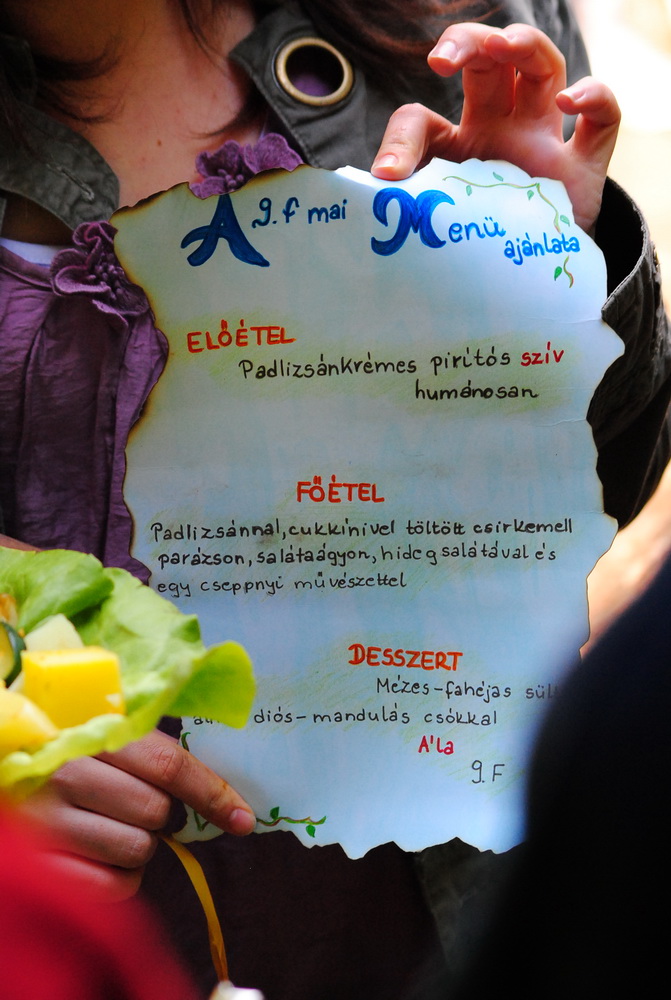 A 9.f mai Menü
ajánlata
ELŐÉTEL
Padlizsánkrémes pirítós szív
humánosan
FŐÉTEL
Padlizsánnal, cukkínivel töltött csirkemell
parázson, salátaágyon, hideg salátával és
egy cseppnyi művészettel
DESSZERT
Mézes-fahéjas
diós-mandulás csókkal
A'la
9.F